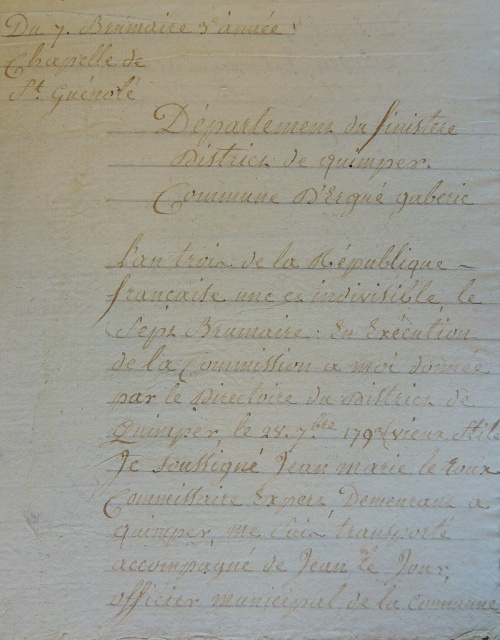 Du 7. Brumaire 3e année
Chapelle de
St. Guénolé
Département du finistère
District de quimper.
Commune D'Ergué gaberic
L'an trois de la République
française une et indivisible, le
Sept Brumaire: En Exécution
de la Commission a moi donnée
par le Directoire du District de
Quimper, le 28. 7.bre (vieux Stile
Je soussigné Jean marie le Roux
Commissaire Expert, Demeurant a
quimper, me suis transporté
accompagné de Jean le Jour,
officier municipal de la commune